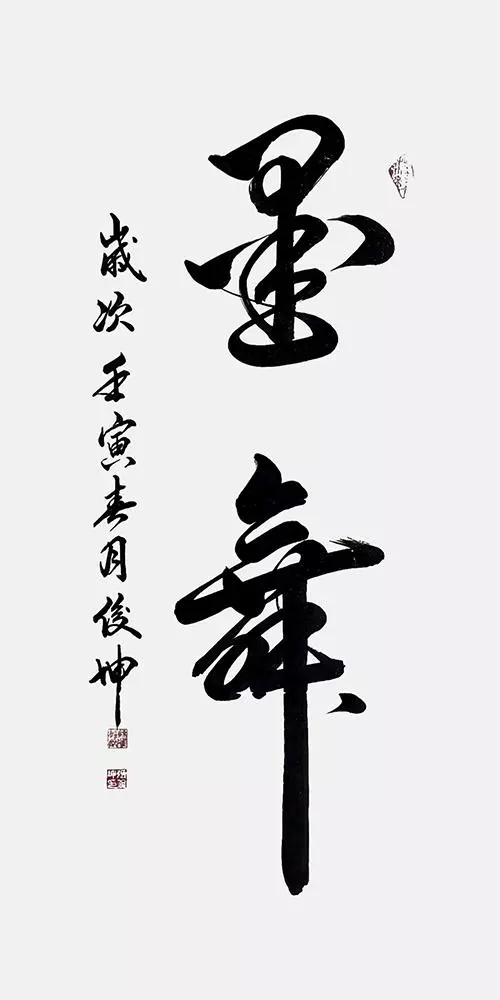 墨舞
歲次壬寅春月俊坤